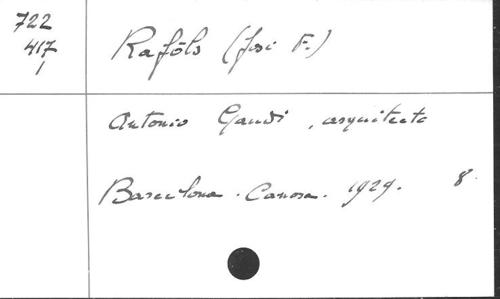 722
417
1
Rafóls (José F.)
Antonio Gaudi, arquitecto
Barcelona. Canosa. 1929. 8